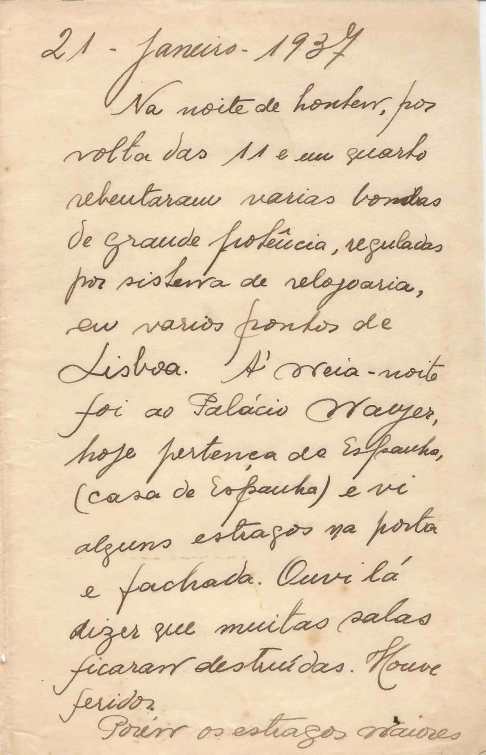 21 - Janeiro - 1937
Na noite de hontem, por
volta das 11 e um quarto
rebentaram varias bombas
de grande potência, reguladas
por sistema de relojoaria,
em varios pontos de
Lisboa. Á meia-noite
foi ao Palácio Mayer,
hoje pertença de Espanha,
(casa de Espanha) e vi
alguns estragos na porta
e fachada. Ouvi lá
dizer que muitas salas
ficaram destruídas. Houve
feridos.
Porém os estragos maiores